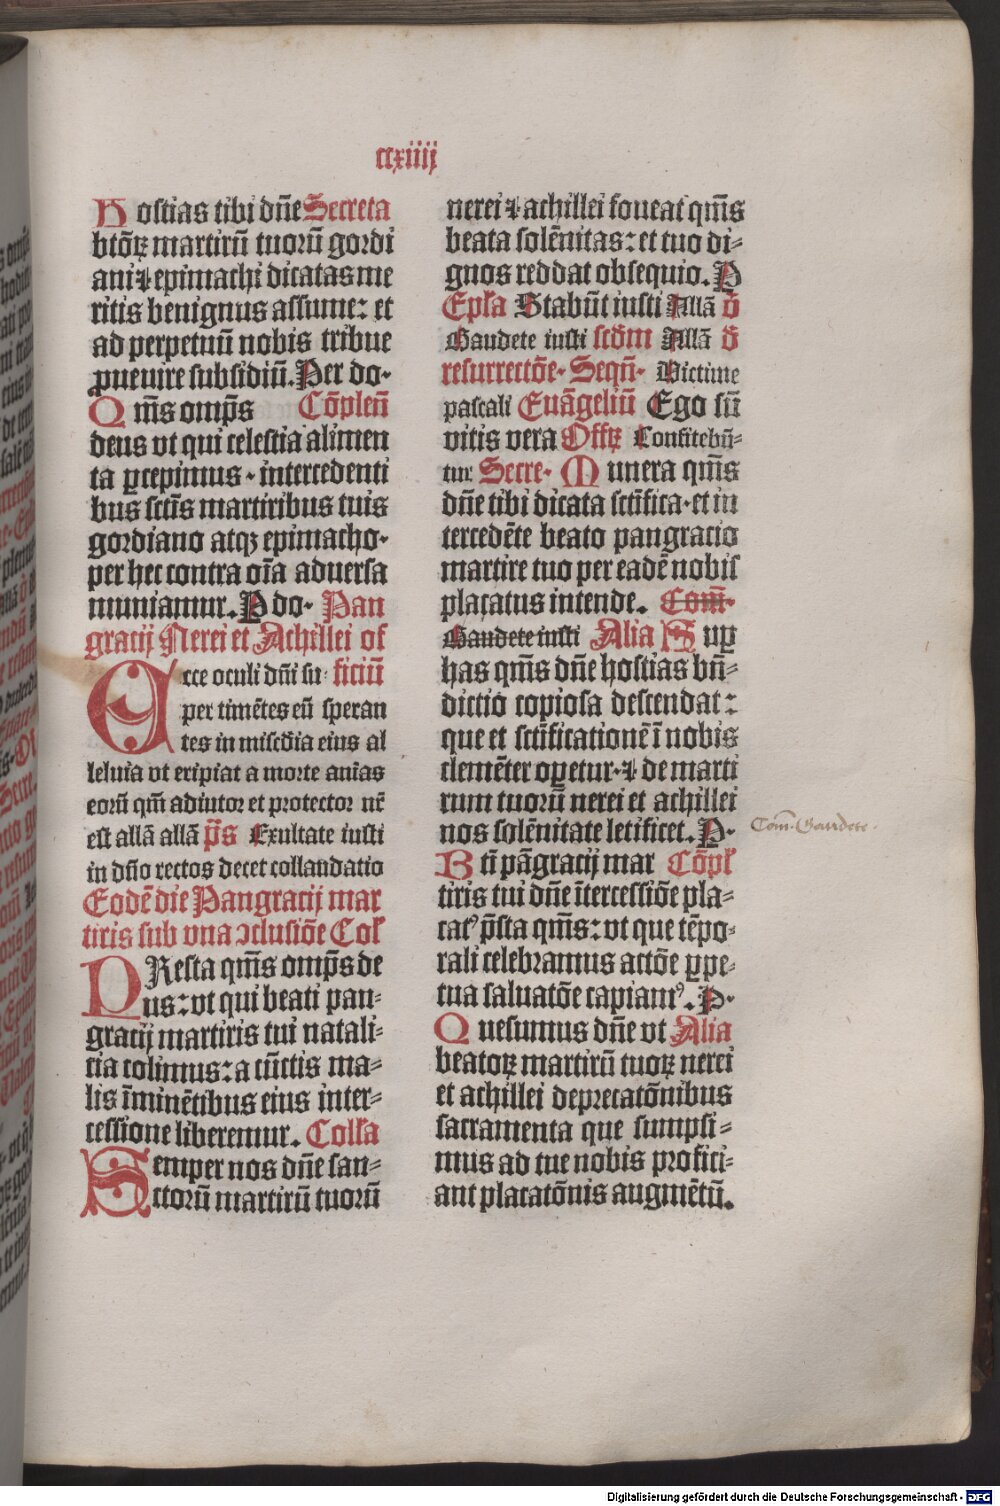 ccxiiij
Hostias tibi dn̄e Secreta
btōꝝ martirū tuorū gordi
ani ⁊ epimachi dicatas me
ritis benignus assume: et
ad perpetuū nobis tribue
ꝓuenire subsidiū. Per do·
Qm̄s omp̄s Cōplen̄
deus vt qui celestia alimen
ta ꝑcepimus · intercedenti
bus sct̄is martiribus tuis
gordiano atqꝫ epimacho·
per hec contra oīa aduersa
muniamur. P do· Pan
gracij Nerei et Achillei of
Ecce oculi dn̄i su· ficiū
per timētes eū speran
tes in misc̄dia eius al
leluia vt eripiat a morte anīas
eorū qm̄ adiutor et protector nr̄
est allā allā p̄s Exultate iusti
in dn̄o rectos decet collaudatio
Eodē die Pangracij mar
tiris sub vna ↄclusiōe Col̄
PResta qm̄s omp̄s de
us: vt qui beati pan⸗
gracij martiris tui natali⸗
cia colimus: a cūctis ma⸗
lis īminētibus eius inter⸗
cessione liberemur. Coll̄a
Semper nos dn̄e san⸗
ctorū martirū tuorū
nerei ⁊ achillei foueat qm̄s
beata solēnitas: et tuo di⸗
gnos reddat obsequio. P
Epl̄a Stabūt iusti Allā v̄
Gaudete iusti sc̄dm Allā v̄
resurrectōe· Seqn̄· Victime
pascali Euāgeliū Ego sū
vitis vera Off̄ꝝ Confitebū⸗
tur Secre· Munera qm̄s
dn̄e tibi dicata sct̄ifica· et in
tercedēte beato pangracio
martire tuo per eadē nobis
placatus intende. Com̄·
Gaudete iusti Alia Suꝑ
has qm̄s dn̄e hostias bn̄⸗
dictio copiosa descendat:
que et sct̄ificationē ī nobis
clemēter oꝑetur· ⁊ de marti
rum tuorū nerei et achillei
nos solēnitate letificet. P·
Com̄· Gaudete·
Bti pāgracij mar Cōpl̄
tiris tui dn̄e ītercessiōe pla⸗
catꝰ p̄sta qm̄s: vt que tēpo⸗
rali celebramus actōe ꝑpe⸗
tua saluatōe capiamꝰ. P·
Quesumus dn̄e vt Alia
beatoꝝ martirū tuoꝝ nerei
et achillei deprecatōnibus
sacramenta que sumpsi⸗
mus ad tue nobis profici⸗
ant placatōnis augmētū.
Digitalisierung gefördert durch die Deutsche Forschungsgemeinschaft - DFG